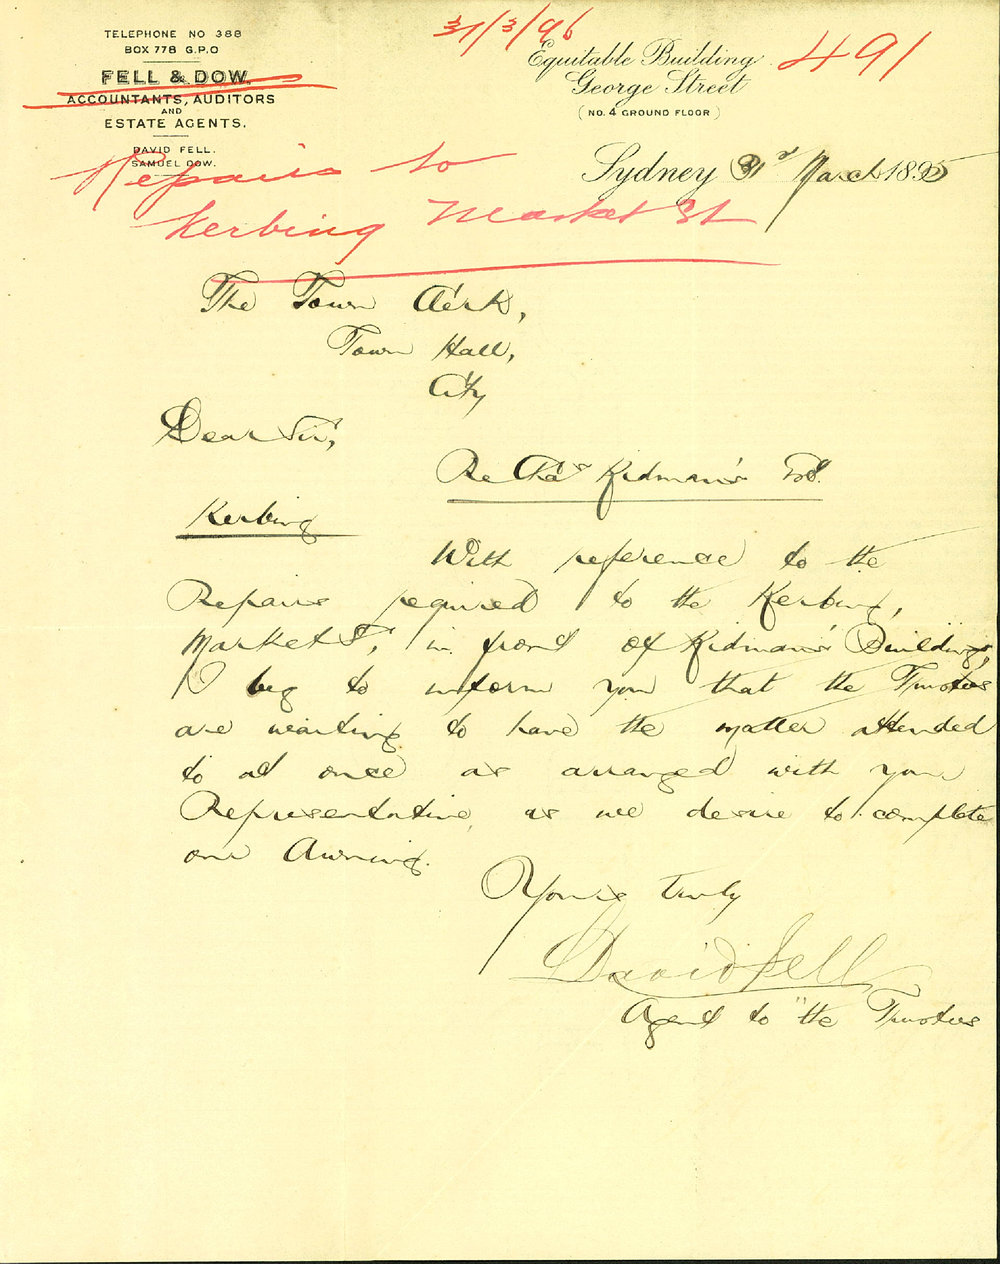 TELEPHONE NO 388
BOX 778 G.P.O
FELL & DOW.
ACCOUNTANTS, AUDITORS
AND
ESTATE AGENTS.
DAVID FELL.
SAMUEL DOW.
31/3/96
491
Equitable Building
George Street
(NO. 4 GROUND FLOOR)
Sydney 31st March 1895
Repairs to
Kerbing Market St
The Town Clerk,
Town Hall,
City
Dear Sir,
Re Chas Kidman's Est.
Kerbing
With reference to the
Repairs required to the Kerbing,
Market St, in front of Kidman's Buildings,
I beg to inform you that the Trustees
are waiting to have the matter attended
to at once as arranged with your
Representative, as we desire to complete
our Awning.
Yours truly
David Fell
Agent to the Trustees